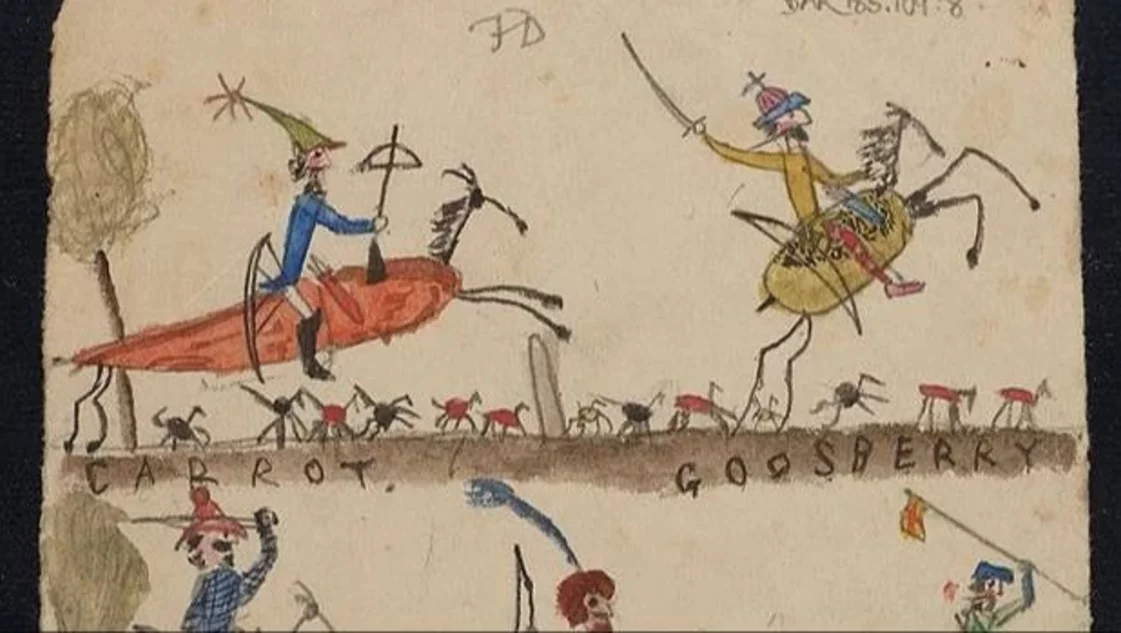 FD
DAR 185.109:8
CARROT.
GOOSBERRY